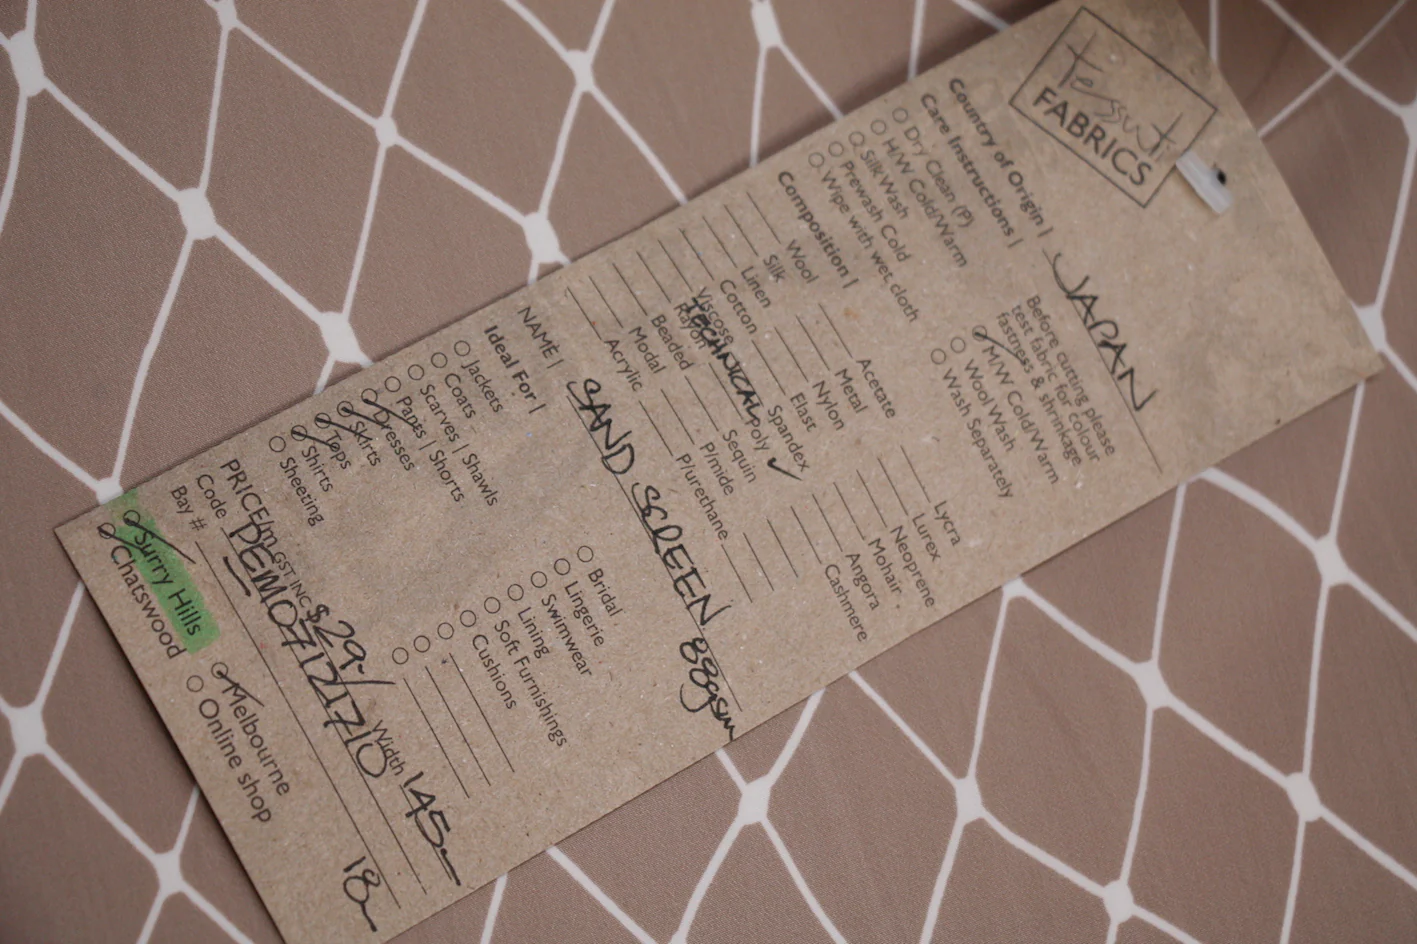 tessuti
FABRICS
Country of Origin | JAPAN
Care Instructions |
Before cutting please
test fabric for colour
fastness & shrinkage
Dry Clean (P)
H/W Cold/Warm
Silk Wash
Prewash Cold
Wipe with wet cloth
M/W Cold/Warm
Wool Wash
Wash Separately
Composition |
Wool
Silk
Linen
Cotton
Viscose
Rayon
Beaded
Modal
Acrylic
Acetate
Metal
Nylon
Elast
Spandex
TECHNICAL Poly ✓
Sequin
P/mide
P/urethane
Lycra
Lurex
Neoprene
Mohair
Angora
Cashmere
NAME | SAND SCREEN 88gsm
Ideal For |
Jackets
Coats
Scarves | Shawls
Pants | Shorts
Dresses
Skirts
Tops
Shirts
Sheeting
Bridal
Lingerie
Swimwear
Lining
Soft Furnishings
Cushions
PRICE/m GST INC $29.- Width 145-
Code PEM07121710
Bay # 18
Surry Hills
Chatswood
Melbourne
Online shop